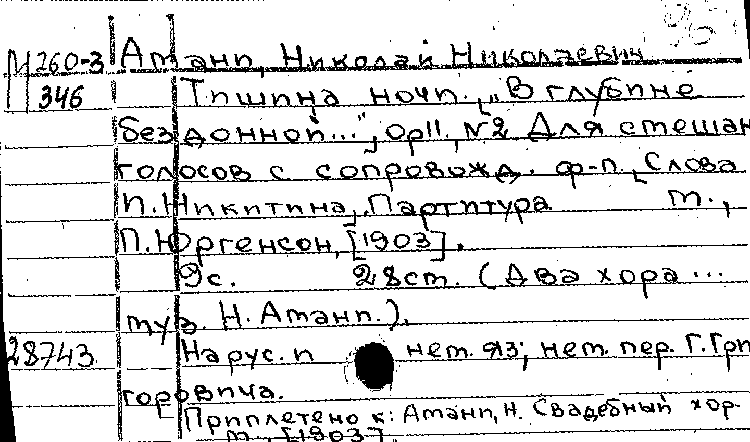 96
М260-3 Амани, Николай Николаевич
346 Тишина ночи. „В глубине
бездонной...", ор11, №2 Для смешан
голосов с сопровожд. ф-п, Слова
И. Никитина, Партитура М.,
П. Юргенсон, [1903].
9с. 28см. (Два хора ...
муз. Н. Амани.).
28743 На рус. и нем. яз; нем. пер. Г. Гри
горовича.
Приплетено к: Амани, Н. Свадебный хор.
М., [1903].